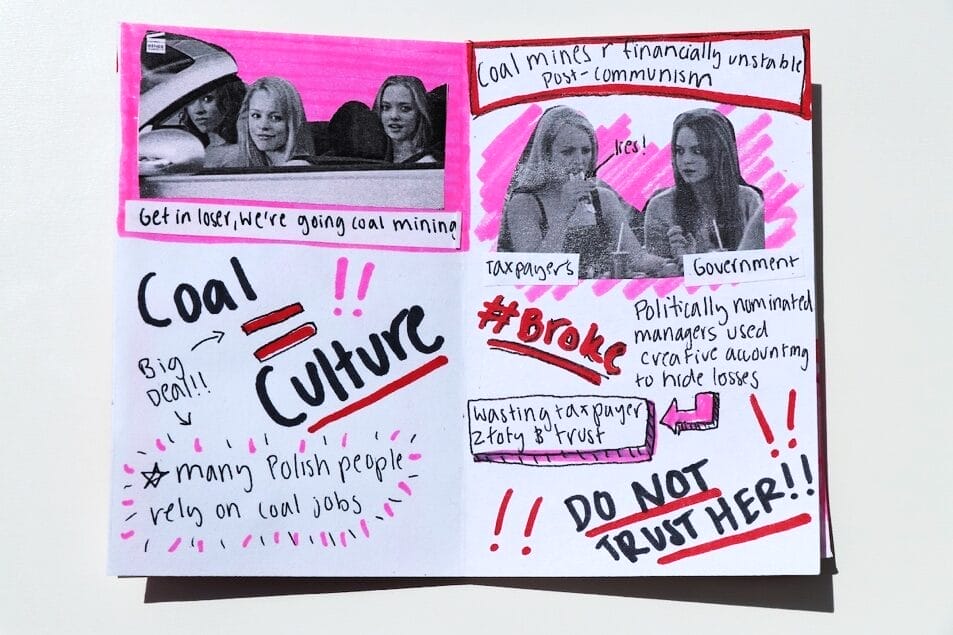 Get in loser, we're going coal mining
Coal
=
Culture
!!
Big
Deal!!
many Polish people
rely on coal jobs
Coal mines r financially unstable
post-communism
lies!
Taxpayers
Government
#Broke
Politically nominated
managers used
creative accounting
to hide losses
wasting taxpayer
zloty $ trust
!!
!!
DO NOT
TRUST HER!!